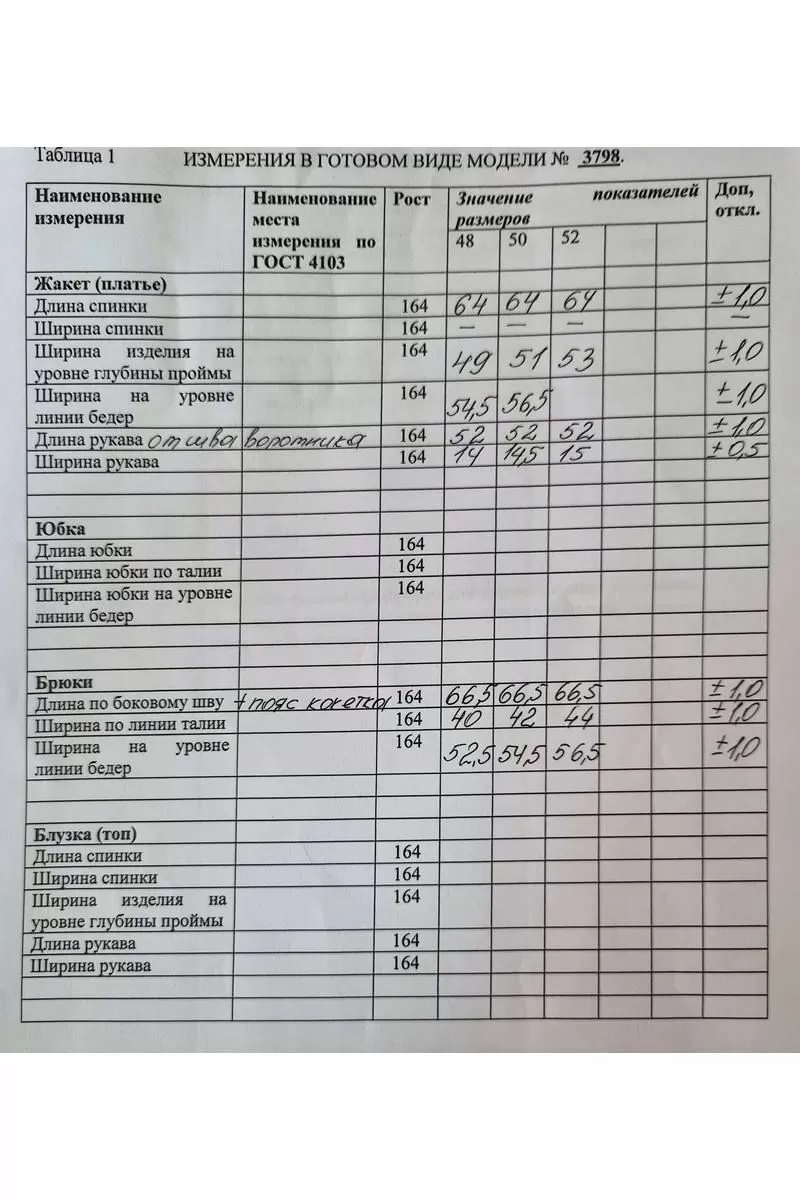 Таблица 1
ИЗМЕРЕНИЯ В ГОТОВОМ ВИДЕ МОДЕЛИ № 3798.
Наименование измерения Наименование места измерения по ГОСТ 4103 Рост Значение показателей размеров Доп, откл.
48 50 52
Жакет (платье)
Длина спинки 164 64 64 64 ±1,0
Ширина спинки 164 — — — —
Ширина изделия на уровне глубины проймы 164 49 51 53 ±1,0
Ширина на уровне линии бедер 164 54,5 56,5 ±1,0
Длина рукава от шва воротника 164 52 52 52 ±1,0
Ширина рукава 164 14 14,5 15 ±0,5
Юбка
Длина юбки 164
Ширина юбки по талии 164
Ширина юбки на уровне линии бедер 164
Брюки
Длина по боковому шву + пояс кокетка 164 66,5 66,5 66,5 ±1,0
Ширина по линии талии 164 40 42 44 ±1,0
Ширина на уровне линии бедер 164 52,5 54,5 56,5 ±1,0
Блузка (топ)
Длина спинки 164
Ширина спинки 164
Ширина изделия на уровне глубины проймы 164
Длина рукава 164
Ширина рукава 164